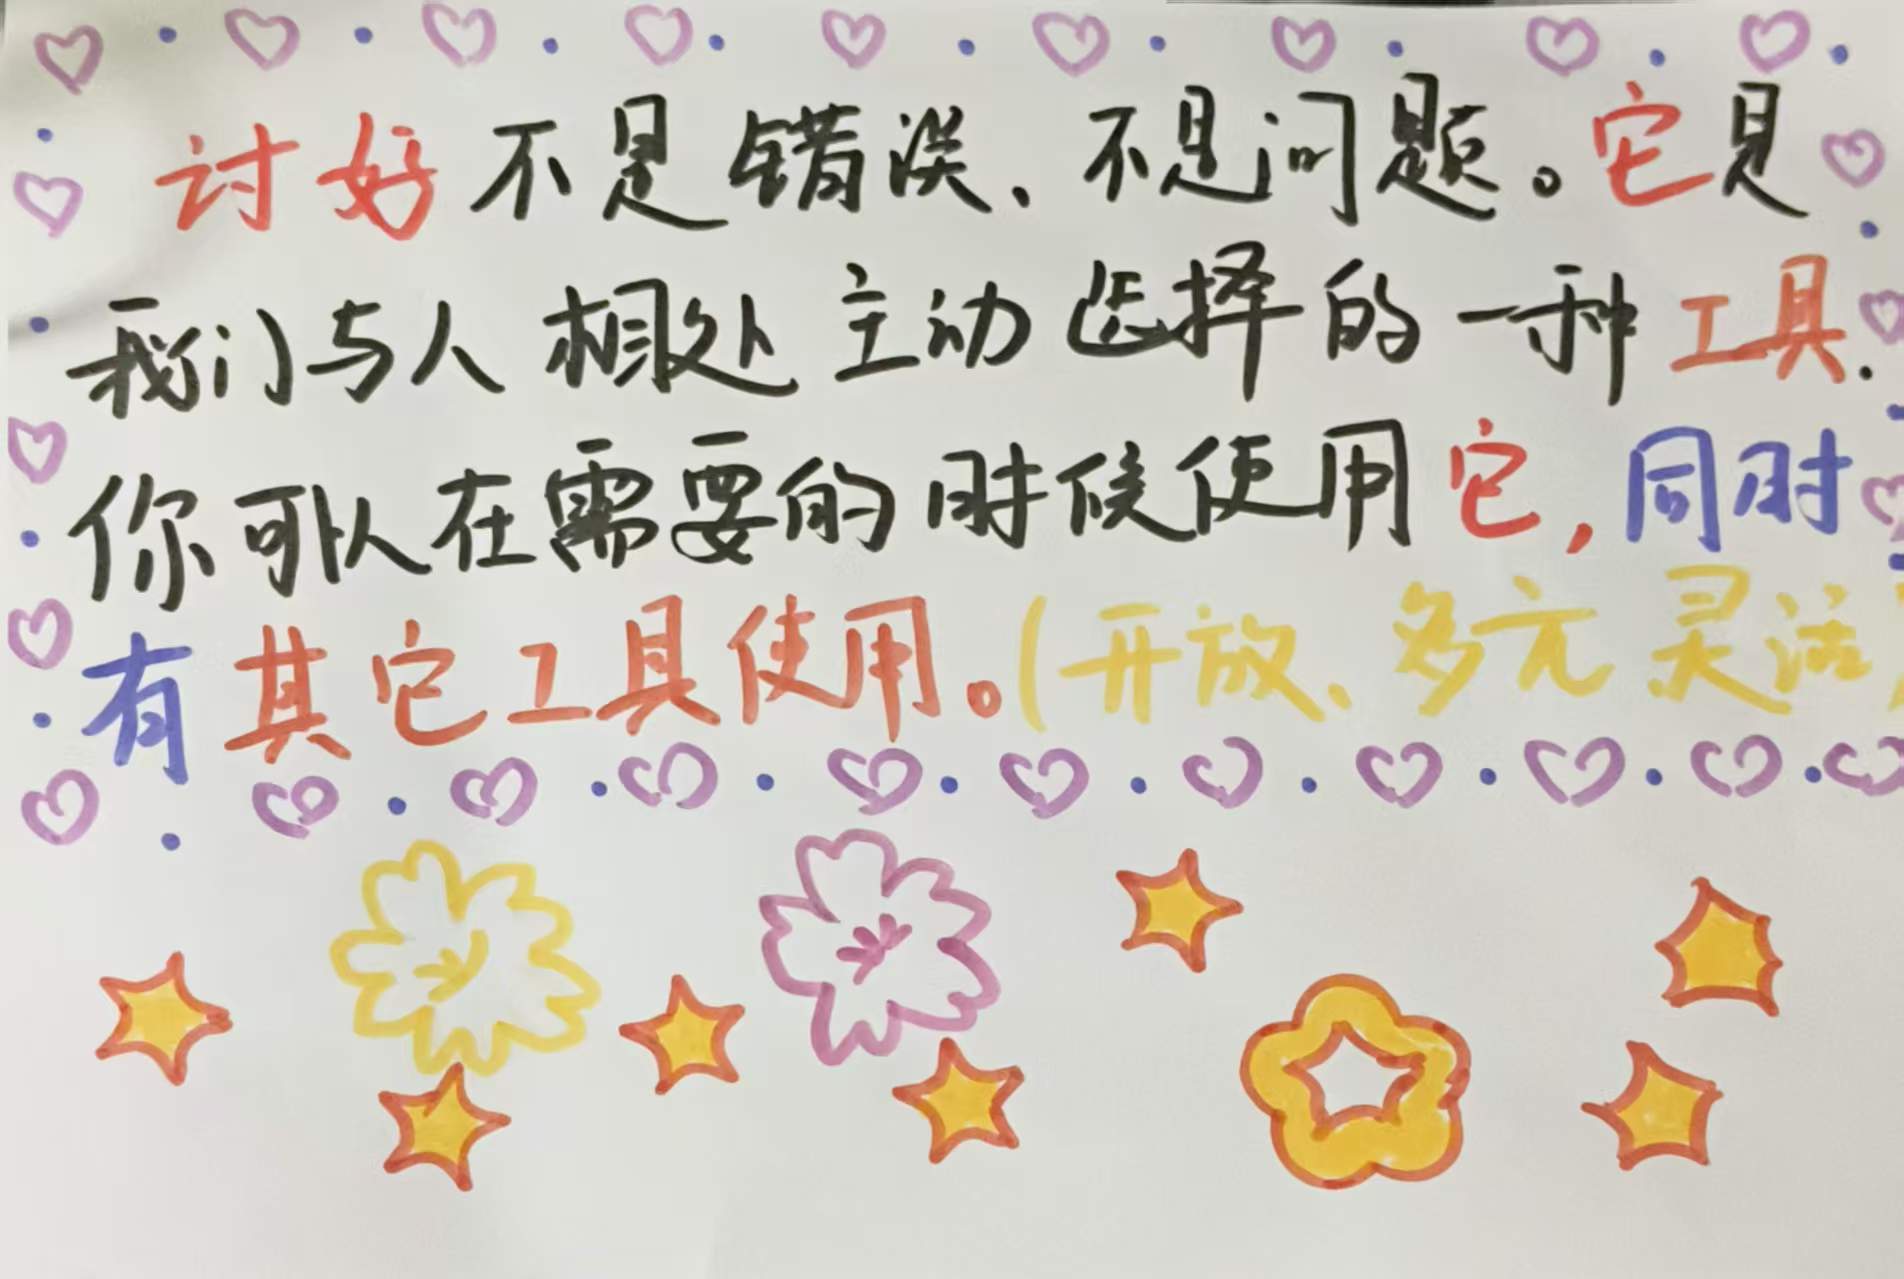 讨好不是错误、不是问题。它是
我们与人相处主动选择的一种工具.
你可以在需要的时候使用它,同时
有其它工具使用。(开放、多元灵活)